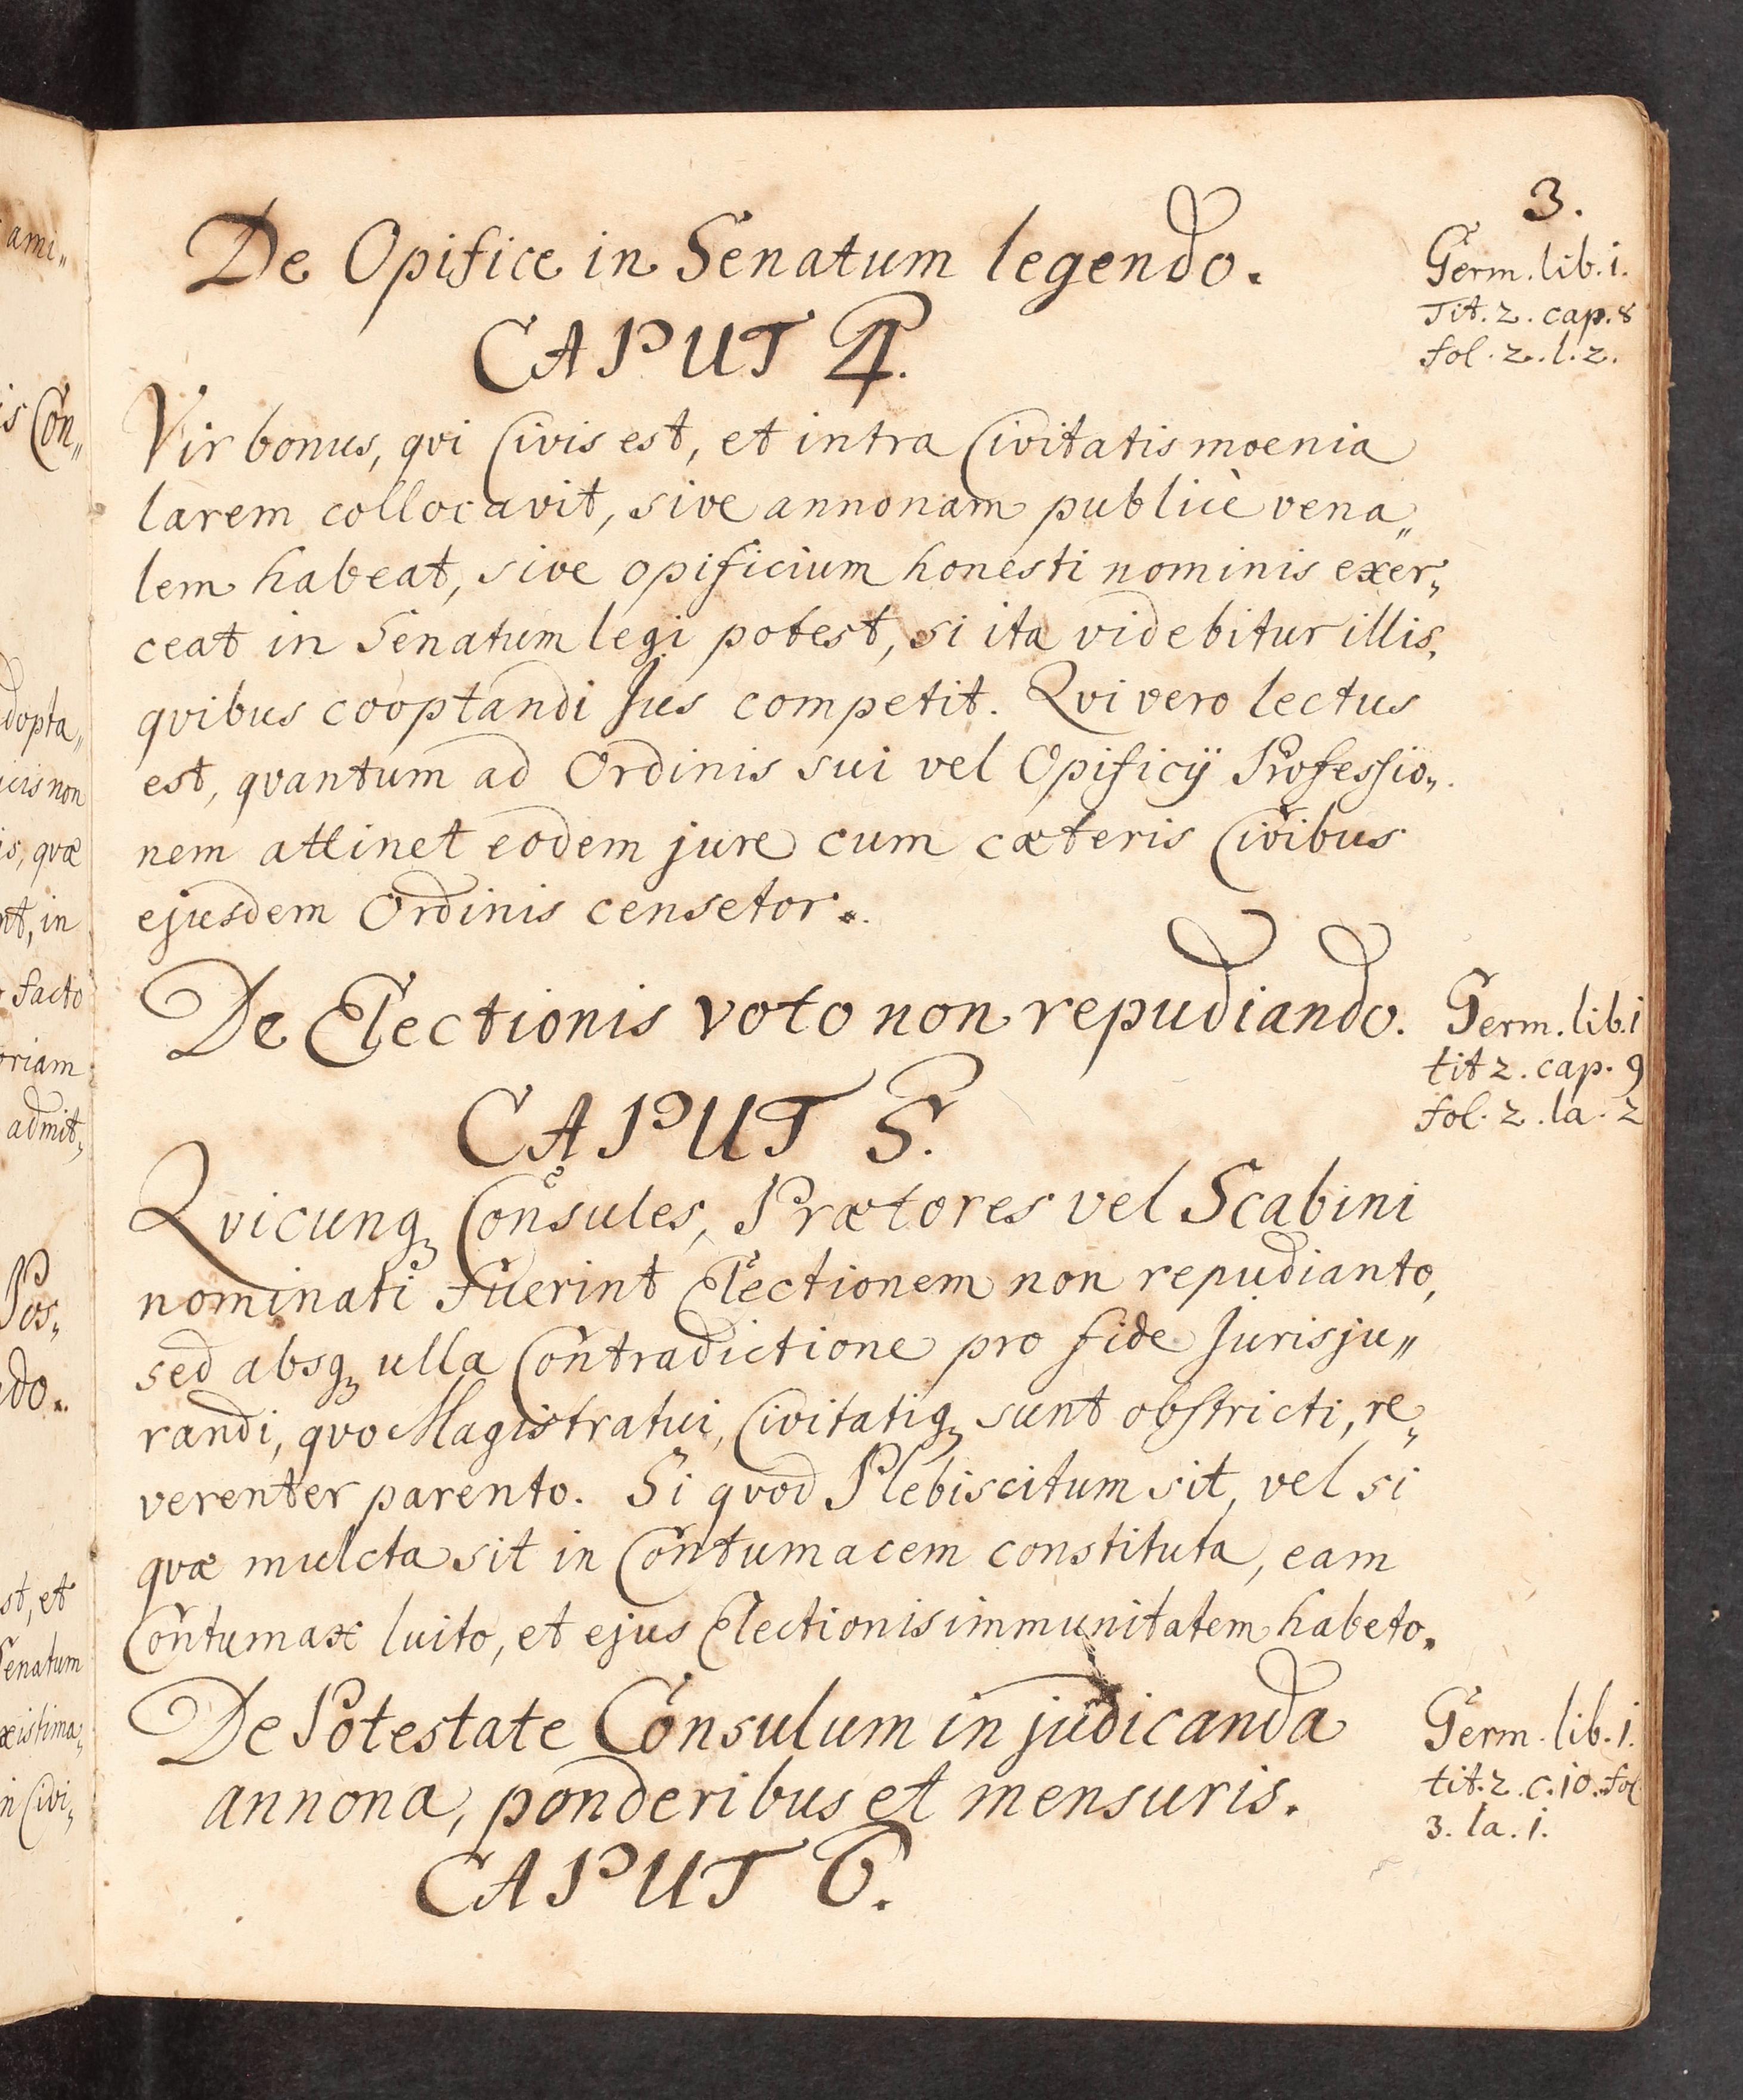 3.
De Opifice in Senatum legendo.
Germ. lib. i.
Tit. 2. cap. 8
fol. 2. l. 2.
CAPUT 4.
Vir bonus, qvi Civis est, et intra Civitatis moenia
larem collocavit, sive annonam publicè vena„
lem habeat, sive opificium honesti nominis exer„
ceat in Senatum legi potest, si ita videbitur illis,
qvibus cooptandi Jus competit. Qvi vero lectus
est, qvantum ad Ordinis sui vel Opificij Professio„
nem attinet eodem jure cum cæteris Civibus
ejusdem Ordinis censetor.
De Electionis voto non repudiando.
Germ. lib. i
tit 2. cap. 9
fol. 2. la. 2
CAPUT 5.
Qvicunqꝫ Consules, Prætores vel Scabini
nominati fuerint Electionem non repudianto,
sed absqꝫ ulla Contradictione pro fide Jurisju„
randi, qvo Magistratui, Civitatiqꝫ sunt obstricti, re„
verenter parento. Si qvod Plebiscitum sit, vel si
qvæ mulcta sit in Contumacem constituta, eam
Contumax luito, et ejus Electionis immunitatem habeto.
De Potestate Consulum in judicanda
annona, ponderibus et mensuris.
Germ. lib. i.
tit. 2. c. i0. fol
3. la. i.
CAPUT 6.
ami„
is Con„
dopta„
icis non
is, qvæ
nt, in
facto
oriam
admit„
Pos„
do.
st, et
Senatum
xistima„
n Civi„